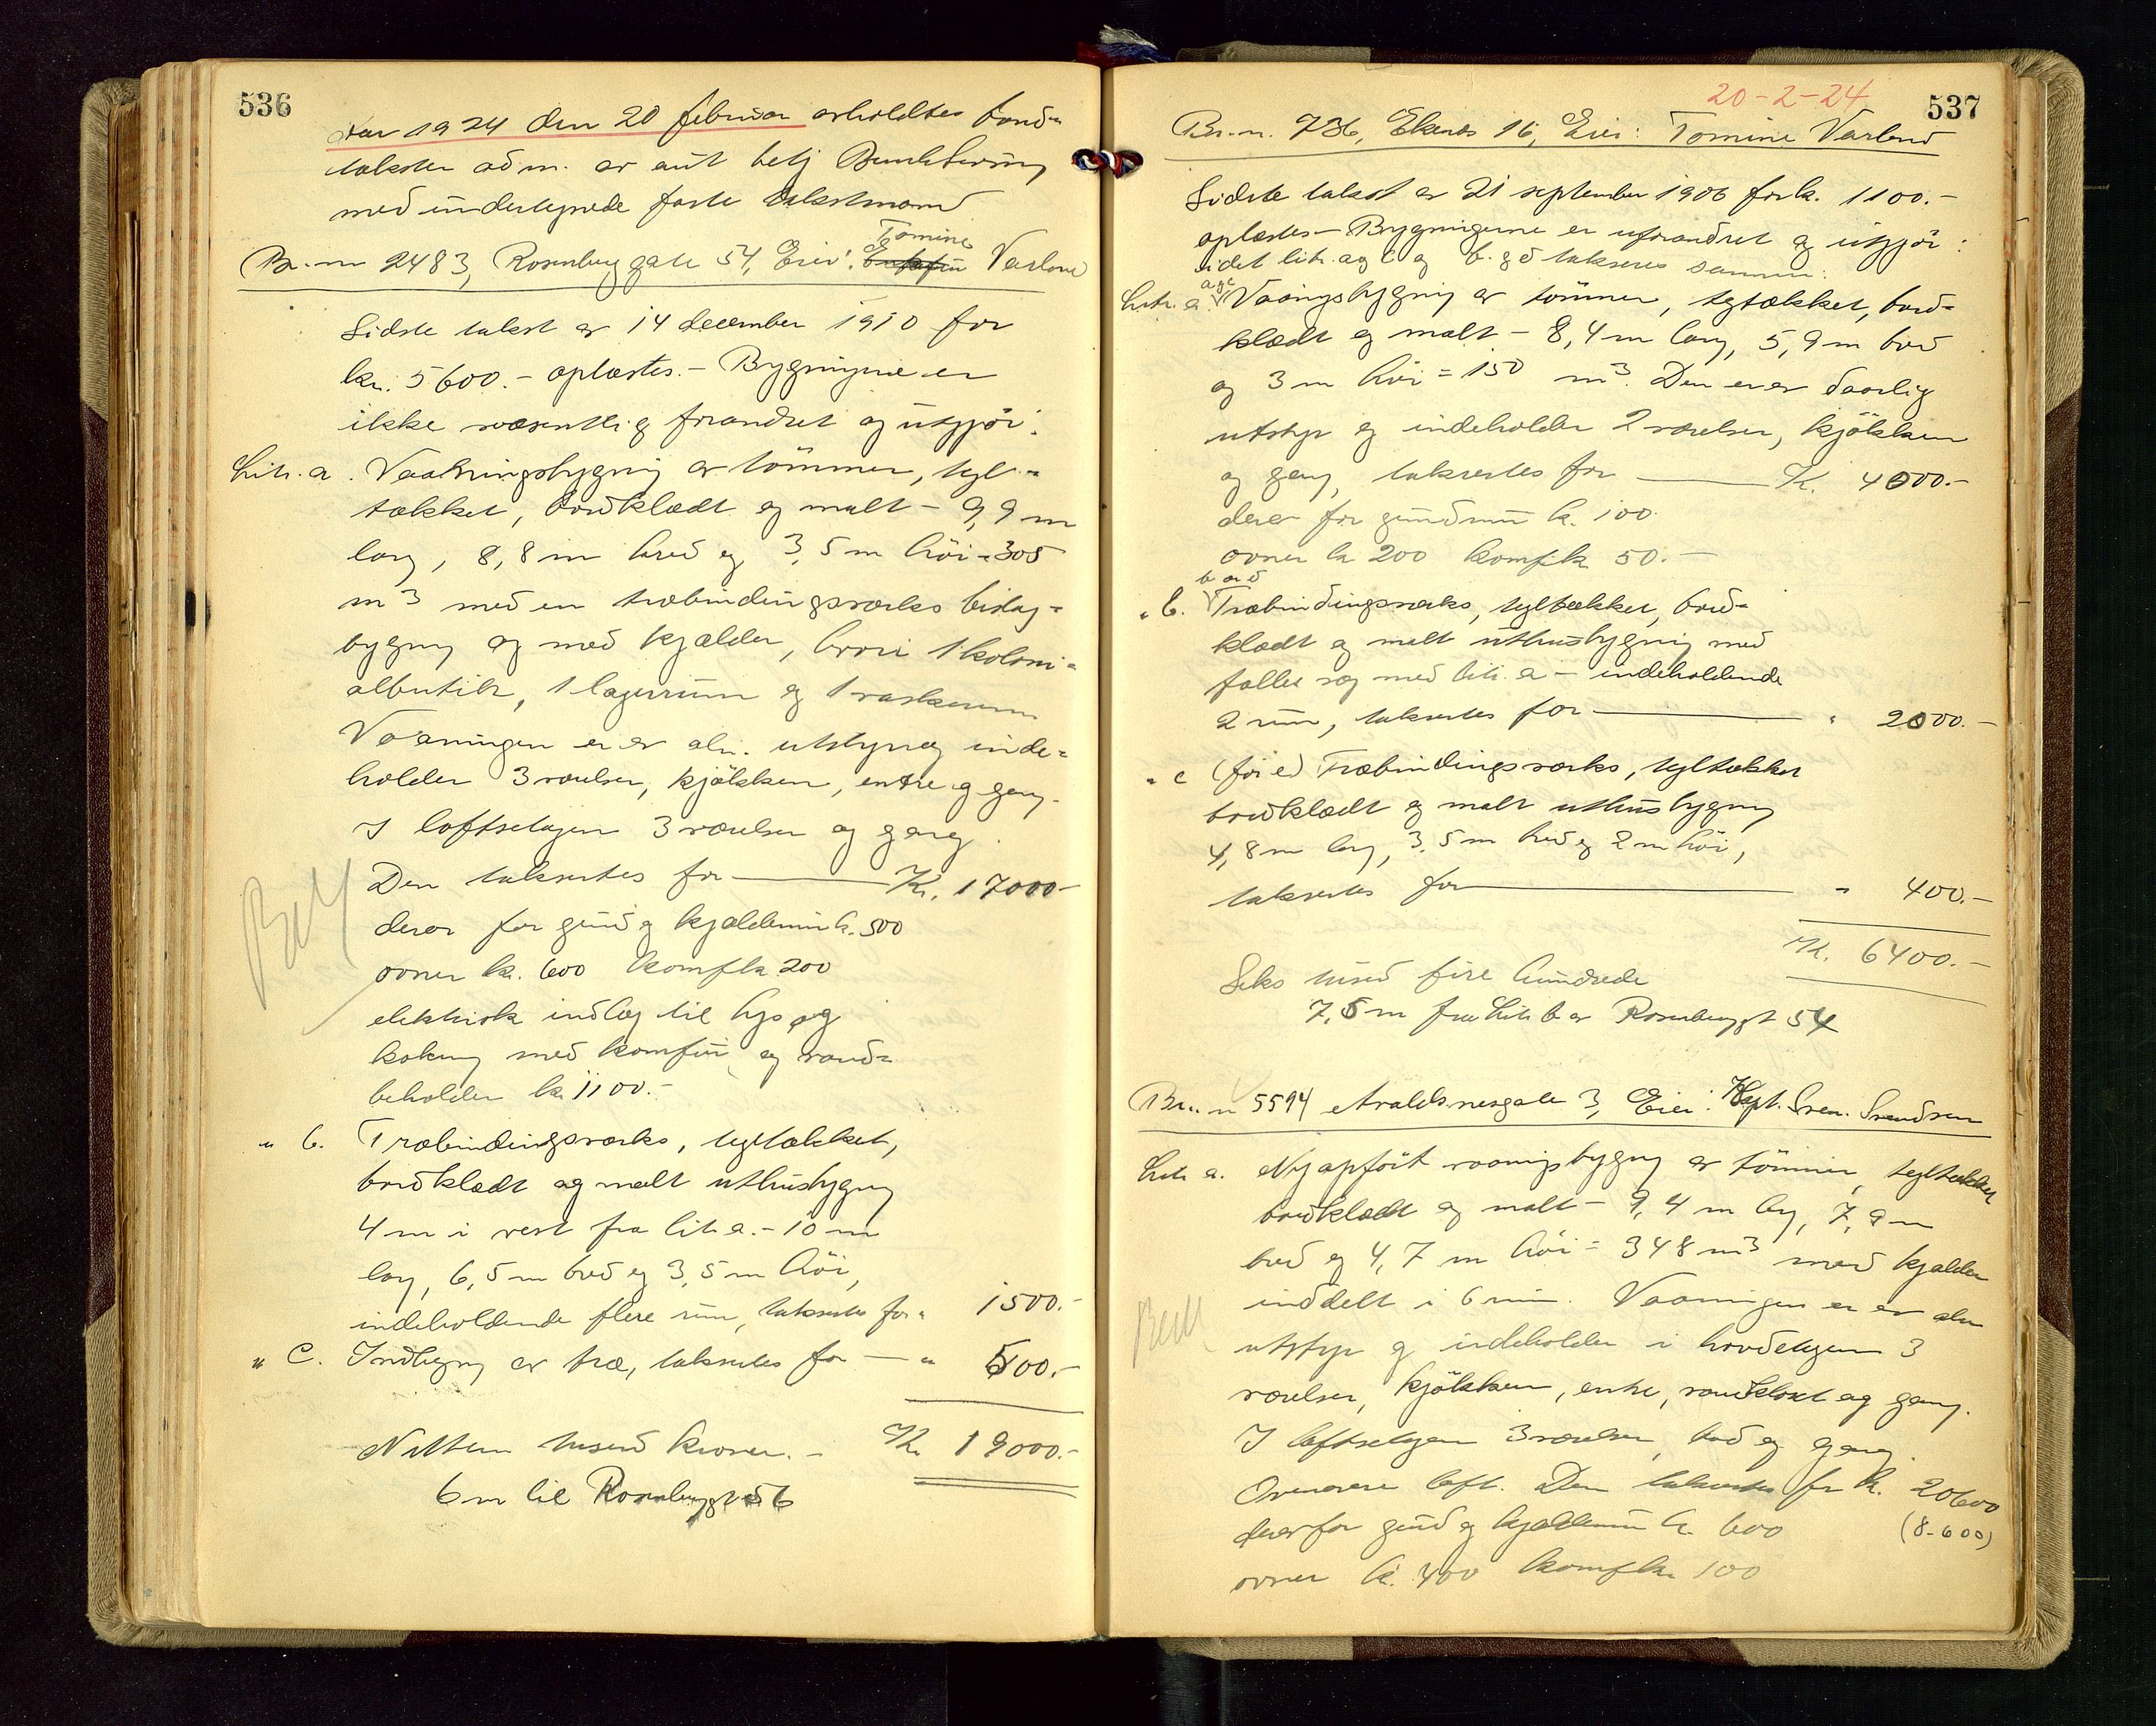 536
Aar 1924 den 20 februar avholdtes brand-
takster adm. av aut betj
med undertegnede faste takstmænd
Br.nr 2483, Rosenberggate 54, Eier: Tomine Varland
Sidste takst av 14 december 1910 for
kr. 5600.- oplæstes.- Bygningene er
ikke væsentlig forandret og utgjør:
Litr. a. Vaaningsbygning av tømmer, tegl-
tækket, bordklædt og malt - 9,9 m
lang, 8,8 m bred og 3,5 m høi = 305
m³ med en træbindingsverks bislag-
bygning og med kjælder, hvori 1 koloni-
albutik, 1 lagerrum og 1 vaskerum
Vaaningen er av alm. utstyr og inde-
holder 3 værelser, kjøkken, entre og gang.
I loftsetagen 3 værelser og gang.
Den taksertes for — Kr. 17000-
derav for grund og kjældermur k. 500
ovner kr. 600 komf kr 200
elektrisk indlæg til lys og
kokning med komfur og vand-
beholder kr 1100.-
" b. Træbindingsverks, tegltækket,
bordklædt og malt uthusbygning
4 m i vest fra lit a. - 10 m
lang, 6,5 m bred og 3,5 m høi,
indeholdende flere rum, taksertes for " 1500.-
" c. Indhegning av træ, taksertes for — " 500.-
Nitten tusend kroner.- Kr 19000.-
6 m til Rosenberggt 56
20-2-24
537
Br.nr. 736, Ekenes 16, Eier: Tomine Varland
Sidste takst av 21 september 1906 for k. 1100.-
oplæstes - Bygningerne er uforandret og utgjør:
idet litr. a og c og b. g d takseres sammen:
Litr. a og c Vaaningsbygning av tømmer, tegtækket, bord-
klædt og malt - 8,4 m lang, 5,9 m bred
og 3 m høi = 150 m³. Den er av daarlig
utstyr og indeholder 2 værelser, kjøkken
og gang, taksertes for — K. 4000.-
derav for grundmur k. 100.
ovner kr 200 komf kr 50.-
" b. b og d Træbindingsverks, tegltækket, bord-
klædt og malt uthusbygning med
fælles væg med lit. a - indeholdende
2 rum, taksertes for — " 2000.-
" c (før e) Træbindingsverks, tegltækket
bordklædt og malt uthusbygning
4,8 m lang, 3,5 m bred og 2 m høi,
taksertes for — " 400.-
Kr. 6400.-
Seks tusend fire hundrede
7,5 m fra Litr b av Rosenberggt 54
Br.nr 5594 Avaldsnesgate 3, Eier: Kapt. Sven. Svendsen
Litr a. Nyopført vaaningsbygning av tømmer, tegltækket
bordklædt og malt - 9,4 m lang, 7,9 m
bred og 4,7 m høi = 348 m³ med kjælder
inddelt i 6 rum. Vaaningen er av alm
utstyr og indeholder i hovedetagen 3
værelser, kjøkken, entre, vandkloset og gang.
I loftsetagen 3 værelser, bad og gang.
Ovenover loft. Den taksertes for k. 20600
derav for grund og kjældermur k. 600 (8-600)
ovner k. 400 komf kr 100